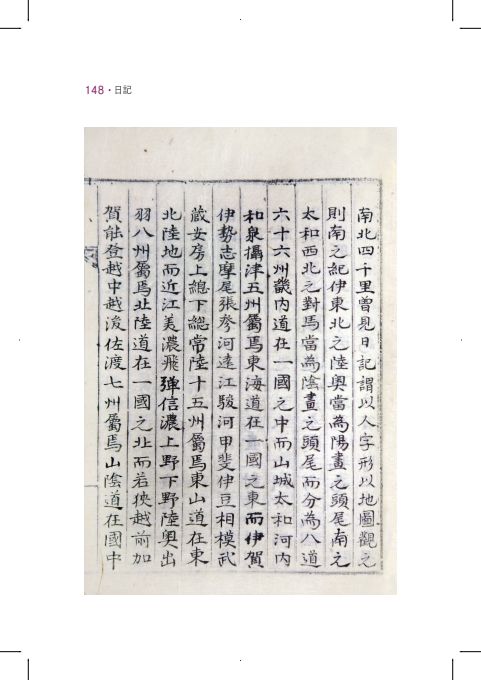 148・日記
南北四千里曾見日記謂以人字形以地圖觀之
則南之紀伊東北之陸奧當為陽畫之頭尾南之
太和西北之對馬當為陰畫之頭尾而分為八道
六十六州畿內道在一國之中而山城太和河內
和泉攝津五州屬焉東海道在一國之東而伊賀
伊勢志摩尾張參河遠江駿河甲斐伊豆相模武
蔵安房上總下總常陸十五州屬焉東山道在東
北陸地而近江美濃飛弾信濃上野下野陸奧出
羽八州屬焉北陸道在一國之北而若狹越前加
賀能登越中越後佐渡七州屬焉山陰道在國中